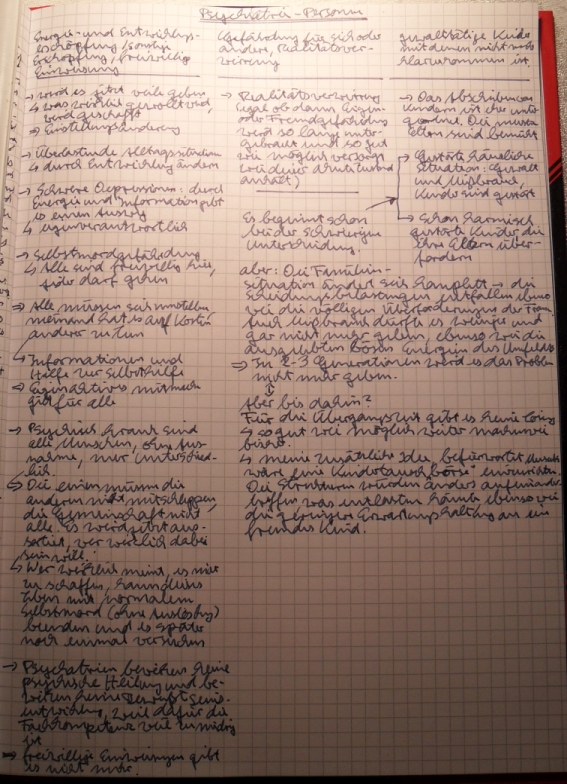 Psychiatrie-Personen
Energie- und Entwicklungs-
erschöpfung, sonstige
Erschöpfung, freiwillig
Einweisung
→ wird es jetzt viele geben
↳ was wirklich gewollt wird,
wird geschafft
⇒ Einstellungsänderung
→ Überlastende Alltagssituationen
↳ durch Entwicklung ändern
→ Schwere Depressionen: durch
Energie und Information gibt
es einen Ausweg
↳ eigenverantwortlich
→ Selbstmordgefährdung
↳ Alle sind freiwillig hier,
jeder darf gehen
→ Alle müssen sich umstellen
niemand hat es auf Kosten
anderer zu tun
↳ Informationen und
Hilfe zur Selbsthilfe
→ Eigenaktives mitmachen
gilt für alle
→ Psychisch krank sind
alle Menschen, ohne Aus-
nahme, nur unterschied-
lich.
↳ Die einen müssen die
anderen nicht mitschleppen,
die Gemeinschaft nicht
alle. Es wird jetzt aus-
sortiert, wer wirklich dabei
sein will.
↳ Wer wirklich meint, es nicht
zu schaffen, kann dieses
Leben mit normalem
Selbstmord (ohne Auslösung)
beenden und es später
noch einmal versuchen
→ Psychiatrien bewirken keine
psychische Heilung und be-
wirken keine
entwicklung, weil dafür die
Fachkompetenz viel zu niedrig
ist
⇒ freiwillige Einweisungen gibt
es nicht mehr.
Gefährdung für sich oder
andere, Realitätsver-
wirrung
→ Realitätsverwirrung
(egal ob dann Eigen-
oder Fremdgefährdung
wird so lange unter-
gebracht und so gut
wie möglich versorgt
Es beginnt schon
bei der schwierigen
Unterscheidung.
aber: Die Familien-
situation ändert sich komplett → die
Scheidungsbelastungen entfallen ebenso
wie die völligen Überforderungen der Frau,
auch Missbrauch dürfte es weniger und
gar nicht mehr geben, ebenso wie die
ausgelebten bösen Energien des Umfelds
⇒ In 2-3 Generationen wird es das Problem
nicht mehr geben.
Aber bis dahin?
Für die Übergangszeit gibt es keine Lösung
↳ so gut wie möglich weiter machen wie
bisher.
↳ meine zusätzliche Idee, befürwortet
wäre eine „Kindertauschbörse“ einzurichten.
Die Strukturen würden anders aufeinander-
treffen was entlasten könnte ebenso wie
die geringere Erwartungshaltung an ein
fremdes Kind.
gewalttätige Kinder
mit denen nicht mehr
klarzukommen ist
→ Das Abschieben von
Kindern ist eher unter-
geordnet. Die meisten
Eltern sind bemüht
→ Gestörte häusliche
Situation: Gewalt
und Missbrauch,
Kinder sind gestört
→ Schon karmisch
gestörte Kinder die
ihre Eltern über-
fordern